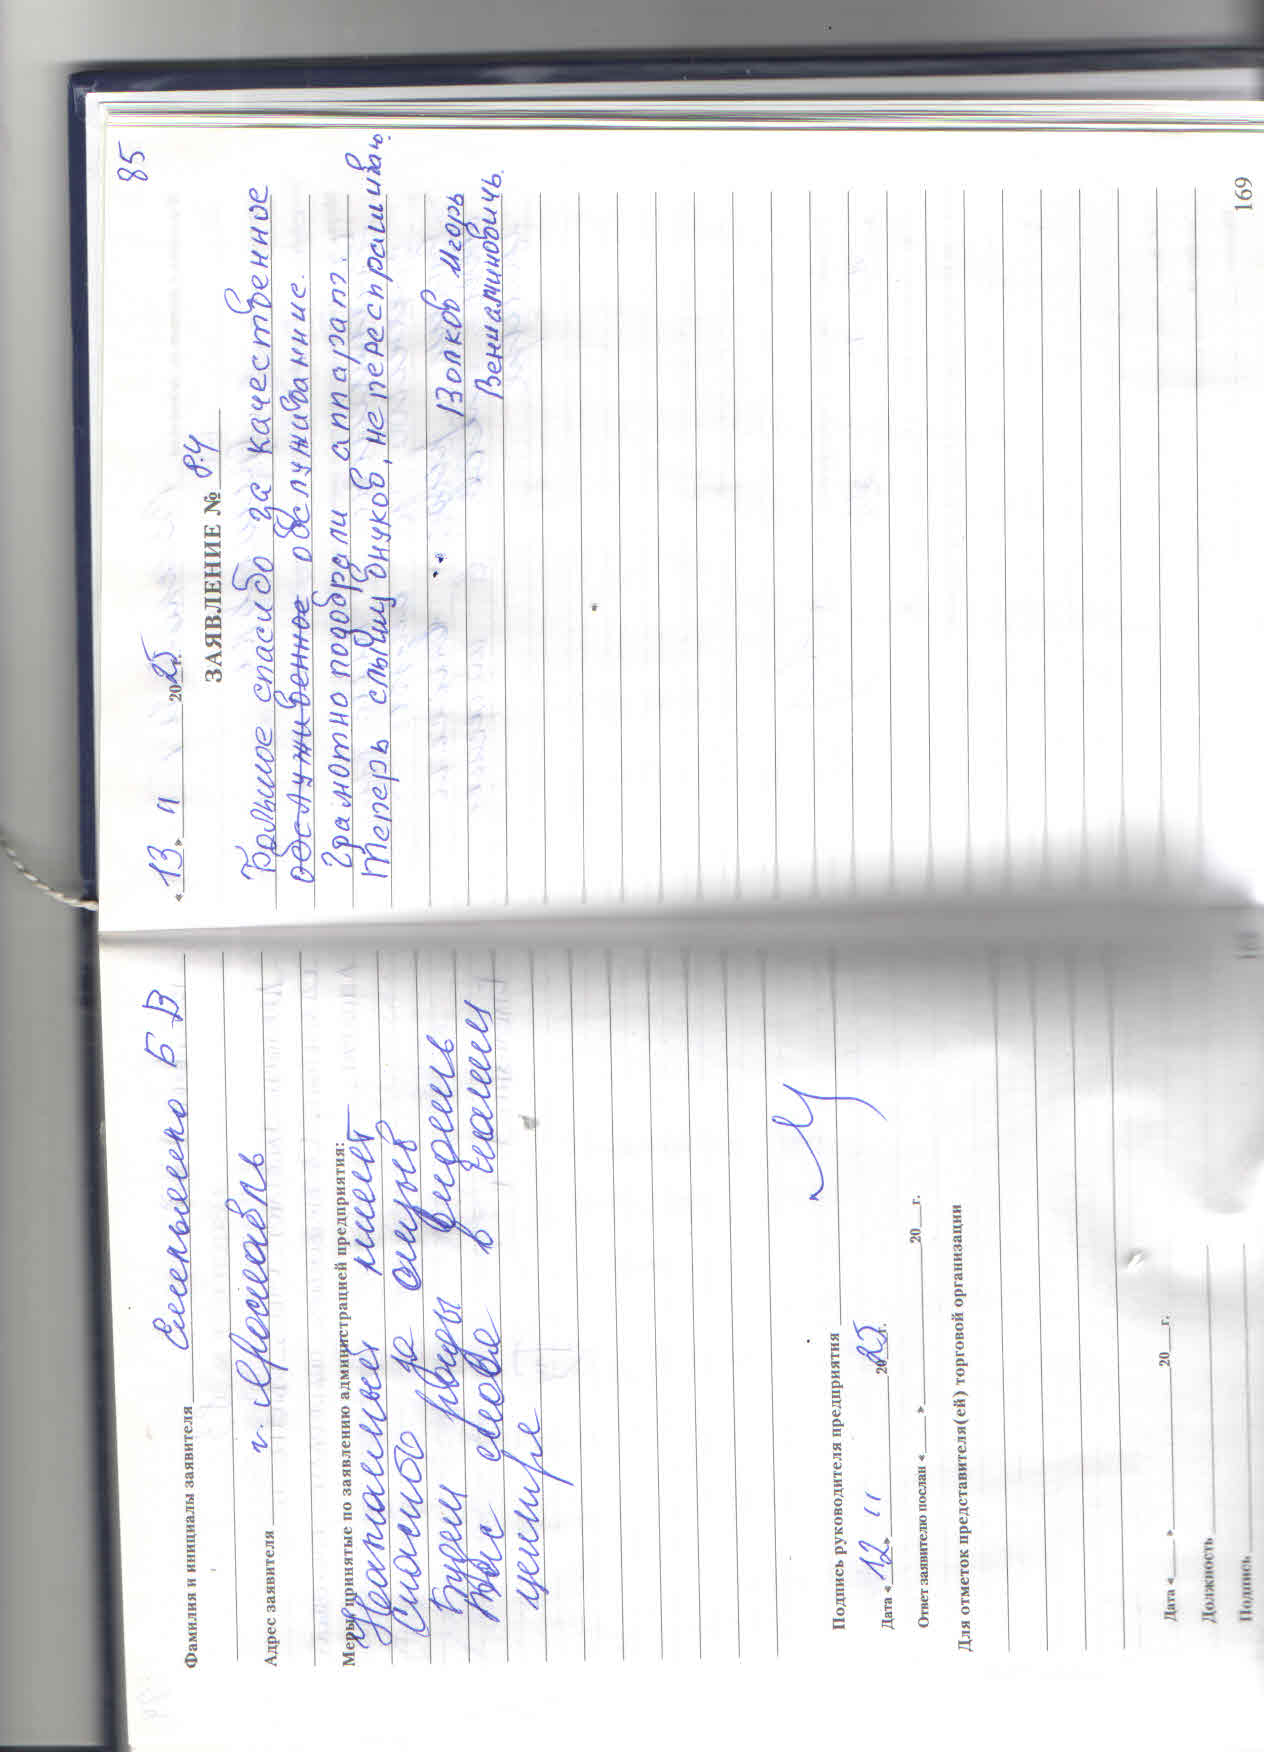 Фамилия и инициалы заявителя Емельяненко Б В
Адрес заявителя г. Ярославль
Меры, принятые по заявлению администрацией предприятия:
Спасибо за отзыв
Будем рады видеть
Вас снова в нашем
центре
Подпись руководителя предприятия
Дата « 12 » 11 2025 г.
Ответ заявителю послан « » 20 г.
Для отметок представителя(ей) торговой организации
Дата « » 20 г.
Должность
Подпись
85
« 13 » 11 2025 г.
ЗАЯВЛЕНИЕ № 84
Большое спасибо за качественное
обслуживенное обслуживанние.
Грамотно подобрали аппарат.
Теперь слышу внуков, не переспрашиваю.
Волков Игорь
Вениаминовичь.
169